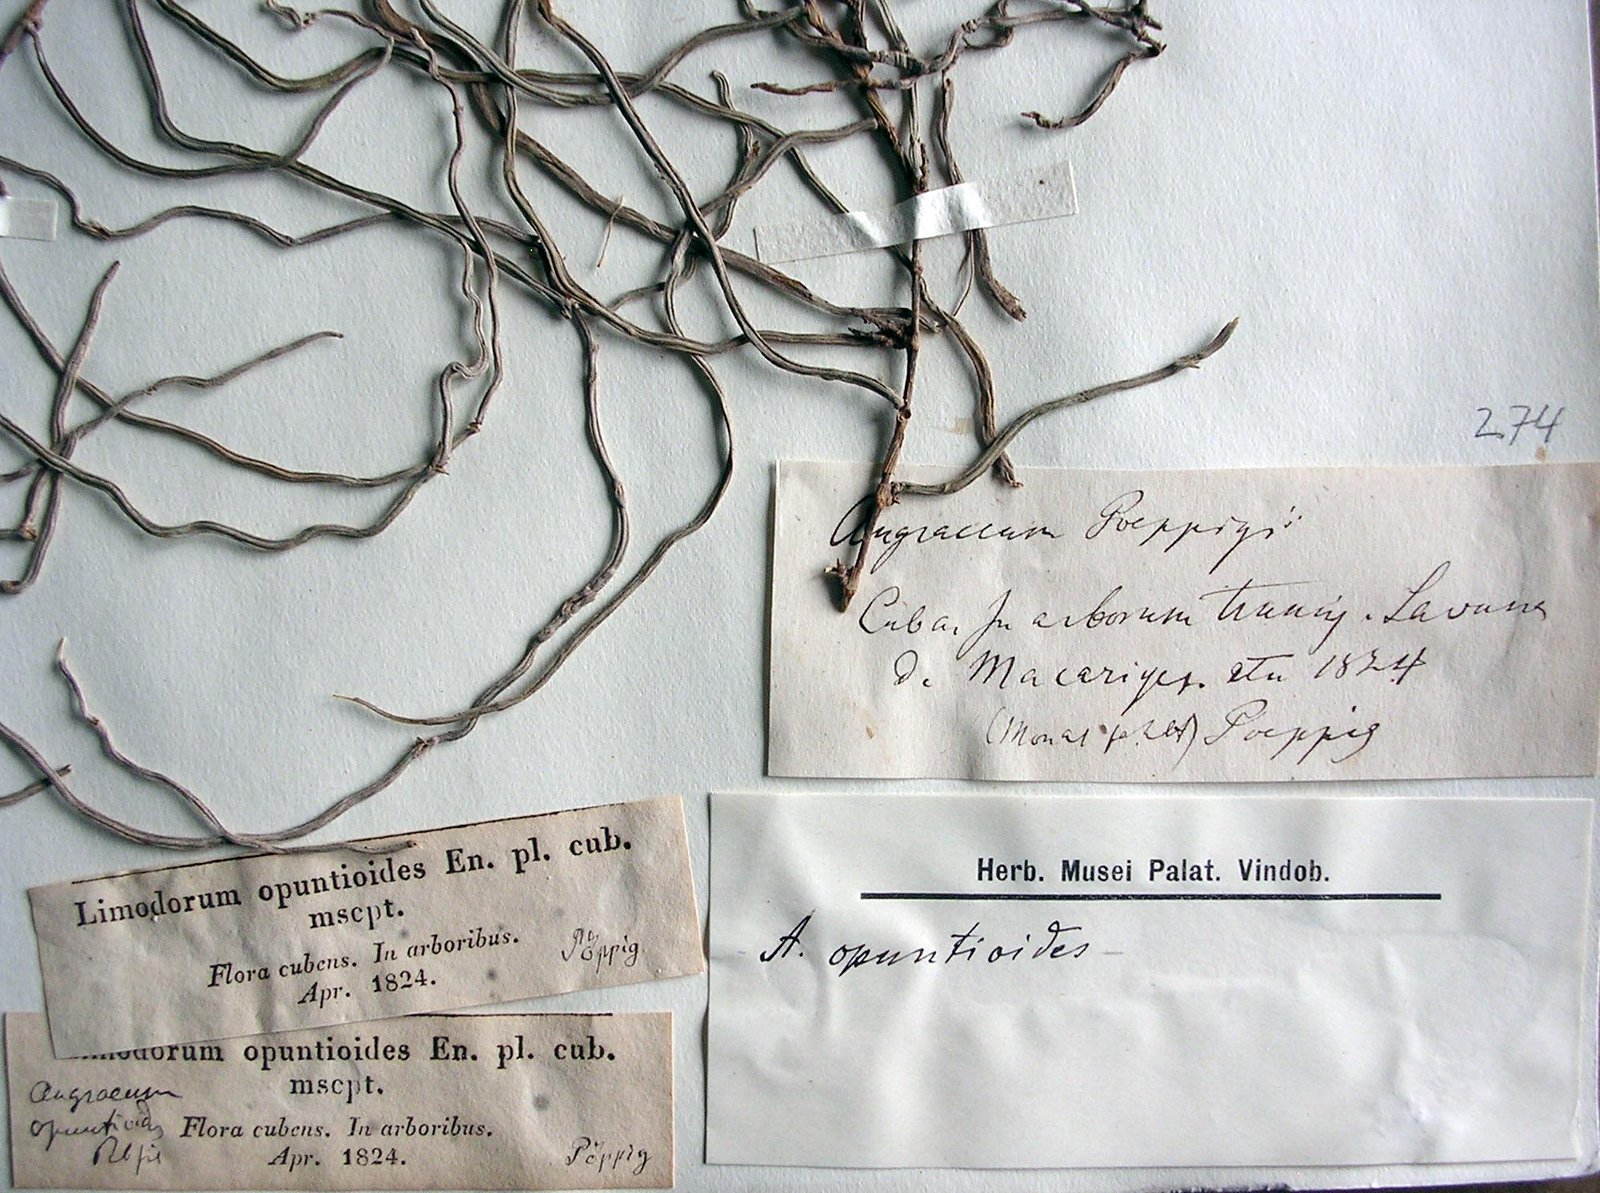 274
Angraecum Poeppigii
Cuba, In arborum truncis. Lavuna
d. Macariges. etu 1824
Poeppig
Herb. Musei Palat. Vindob.
A. opuntioides
Limodorum opuntioides En. pl. cub.
mscpt.
Flora cubens. In arboribus.
Apr. 1824.
Pöppig
Limodorum opuntioides En. pl. cub.
mscpt.
Angraecum
opuntioides Flora cubens. In arboribus.
Apr. 1824.
Pöppig